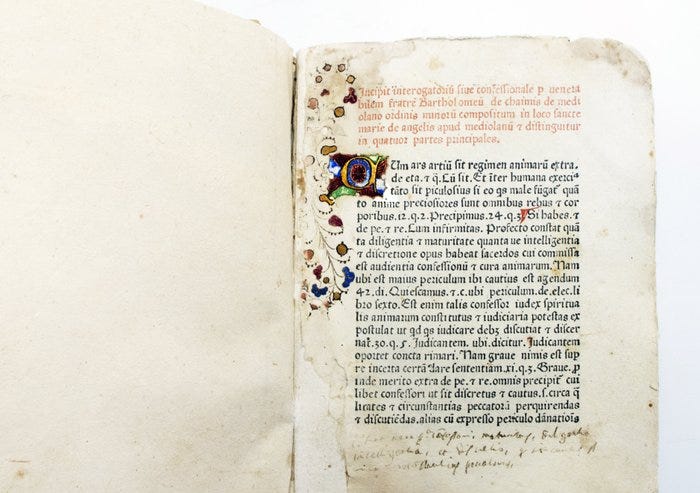 Incipit interogatoriū siue confessionale p venera
bilem fratrē Bartholomeū de chaimis de medi
olano ordinis minorū compositum in loco sancte
marie de angelis apud mediolanū ⁊ distinguitur
in quatuor partes principales.
Um ars artiū sit regimen animarū extra.
de eta. ⁊ q. Cū sit. Et īter humana exerci
tāto sit piculosius si eo qs male fūgat᷑ quā
to anime preciosiores sunt omnibus rebus ⁊ cor
poribus. 12. q. 2. Precipimus. 24. q. 3. Si habes. ⁊
de pe. ⁊ re. Cum infirmitas. Profecto constat quā
ta diligentia ⁊ maturitate quanta ue intelligentia
⁊ discretione opus habeat sacerdos cui commissa
est audientia confessionū ⁊ cura animarum. Nam
ubi est maius periculum ibi cautius est agendum
42. di. Quiescamus. ⁊. c. ubi periculum. de. elec. li
bro sexto. Est enim talis confessor iudex spiritua
lis animarum constitutus ⁊ iudiciaria potestas ex
postulat ut qd qs iudicare debꝫ discutiat ⁊ discer
nat. 30. q. 5. Judicantem. ubi. dicitur. Judicantem
oportet concta rimari. Nam graue nimis est sup
re incerta certā dare sententiam. xi. q. 3. Graue. p
inde merito extra de pe. ⁊ re. omnis precipit᷑ cui
libet confessori ut sit discretus ⁊ cautus. s. circa q
litates ⁊ circumstantias peccatorū perquirendas
⁊ discutiēdas. alias cū expresso periculo dānationis